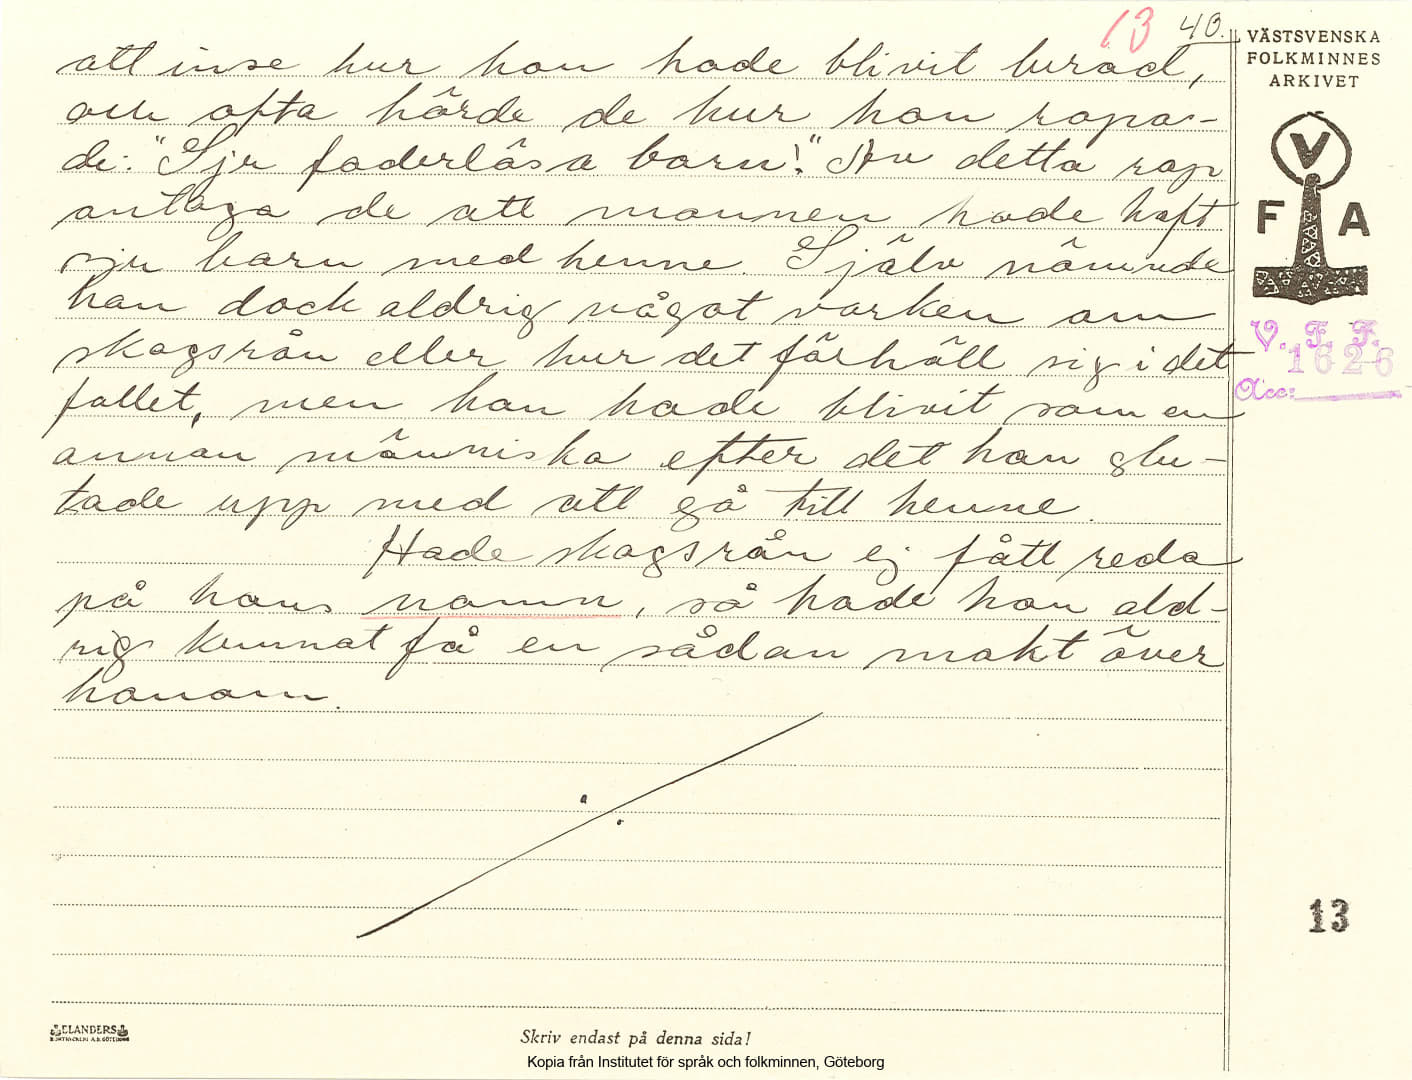 13 40.
att inse hur han hade blivit lurad,
och ofta hörde de hur han ropa-
de: "Sju faderlösa barn!" Av detta rop
antaga de att mannen hade haft
sju barn med henne. Själv nämnde
han dock aldrig något varken om
skogsrån eller hur det förhöll sig i det
fallet, men han hade blivit som en
annan människa efter det han slu-
tade upp med att gå till henne.
Hade skogsrån ej fått reda
på hans namn, så hade han ald-
rig kunnat få en sådan makt över
honom.
VÄSTSVENSKA
FOLKMINNES
ARKIVET
V
F A
V. F. F.
1626
Acc:
13
ELANDERS
Skriv endast på denna sida!
Kopia från Institutet för språk och folkminnen, Göteborg